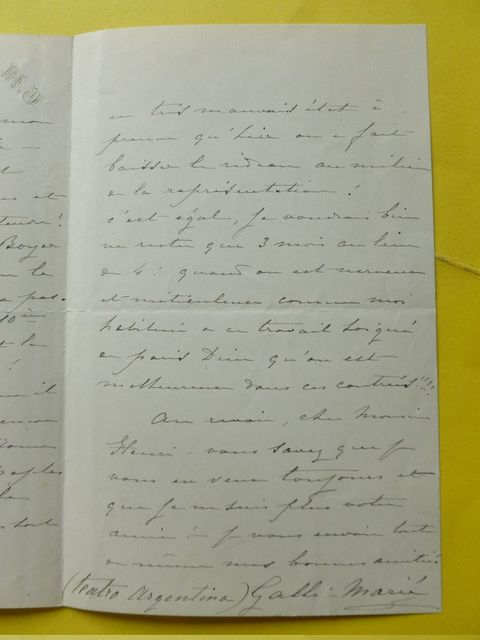 mon
en très mauvais état à
preuve qu'hier on a fait
et
baisser le rideau au milieu
de la représentation!
c'est égal, je voudrais bien
Boyer
ne rester que 3 mois au lieu
le
de 4! quand on est nerveuse
pas.
et méticuleuse comme moi
10ème
habituée a un travail soigné
la
en paix Dieu qu'on est
malheureuse dans ces contrées!!!!
il
Au revoir, cher Monsieur
Henri - vous savez que je
vous en veux toujours et
que je ne suis plus votre
amie! - je vous envoie tout
de même mes bonnes amitiés
(teatro Argentina) Galli-Marié